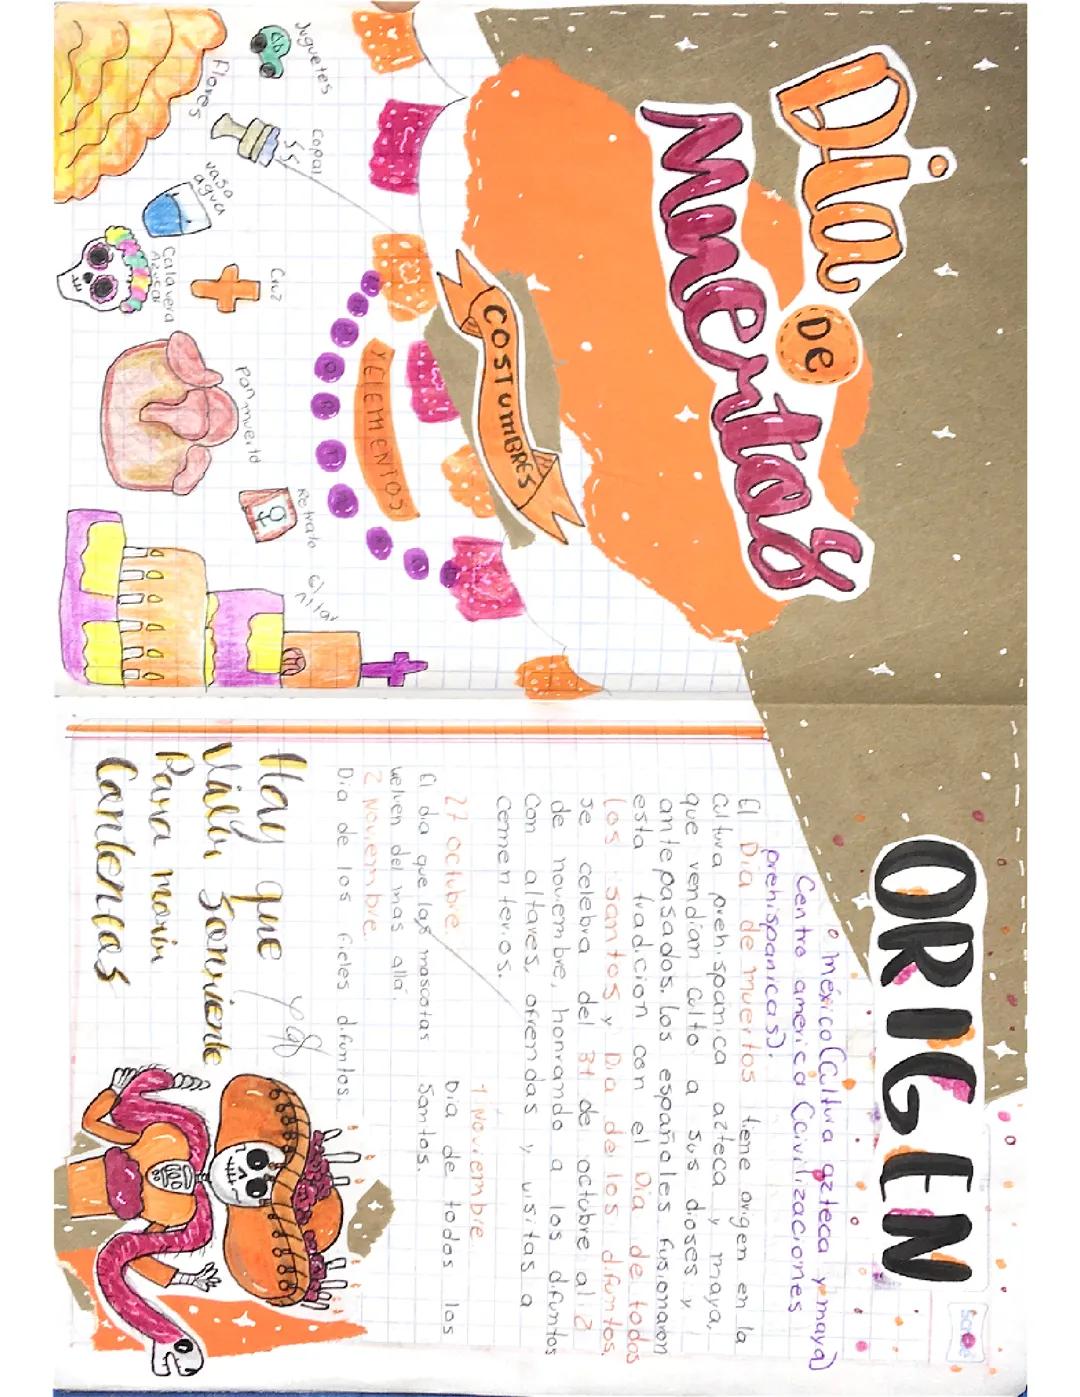 Dia
De
Muertos
COSTUMBRES
Y ELEMENTOS
Juguetes
Flores
Copal
vaso
agua
Calavera
Azucar
Cruz
Pan muerto
Retrato
el altar
ORIGEN
scribe
° méxico (Cultura azteca y maya)
Centro america (civilizaciones
prehispanicas).
El Dia de muertos tiene origen en la
cultura prehispánica azteca y maya,
que vendian culto a sus dioses y
antepasados. Los españoles fusionaron
esta tradicion con el Dia de todos
los santos y Dia de los difuntos.
Se celebra del 31 de octubre al 2
de noviembre, honrando a los difuntos
con altares, ofrendas y visitas a
cementerios.
27 octubre.
El dia que las mascotas
vuelven del mas allá.
1 Noviembre
Dia de todos los
Santos.
2 Noviembre.
Dia de los fieles difuntos.
Hay que
Vivir Sonriente
Para morir
Contentos